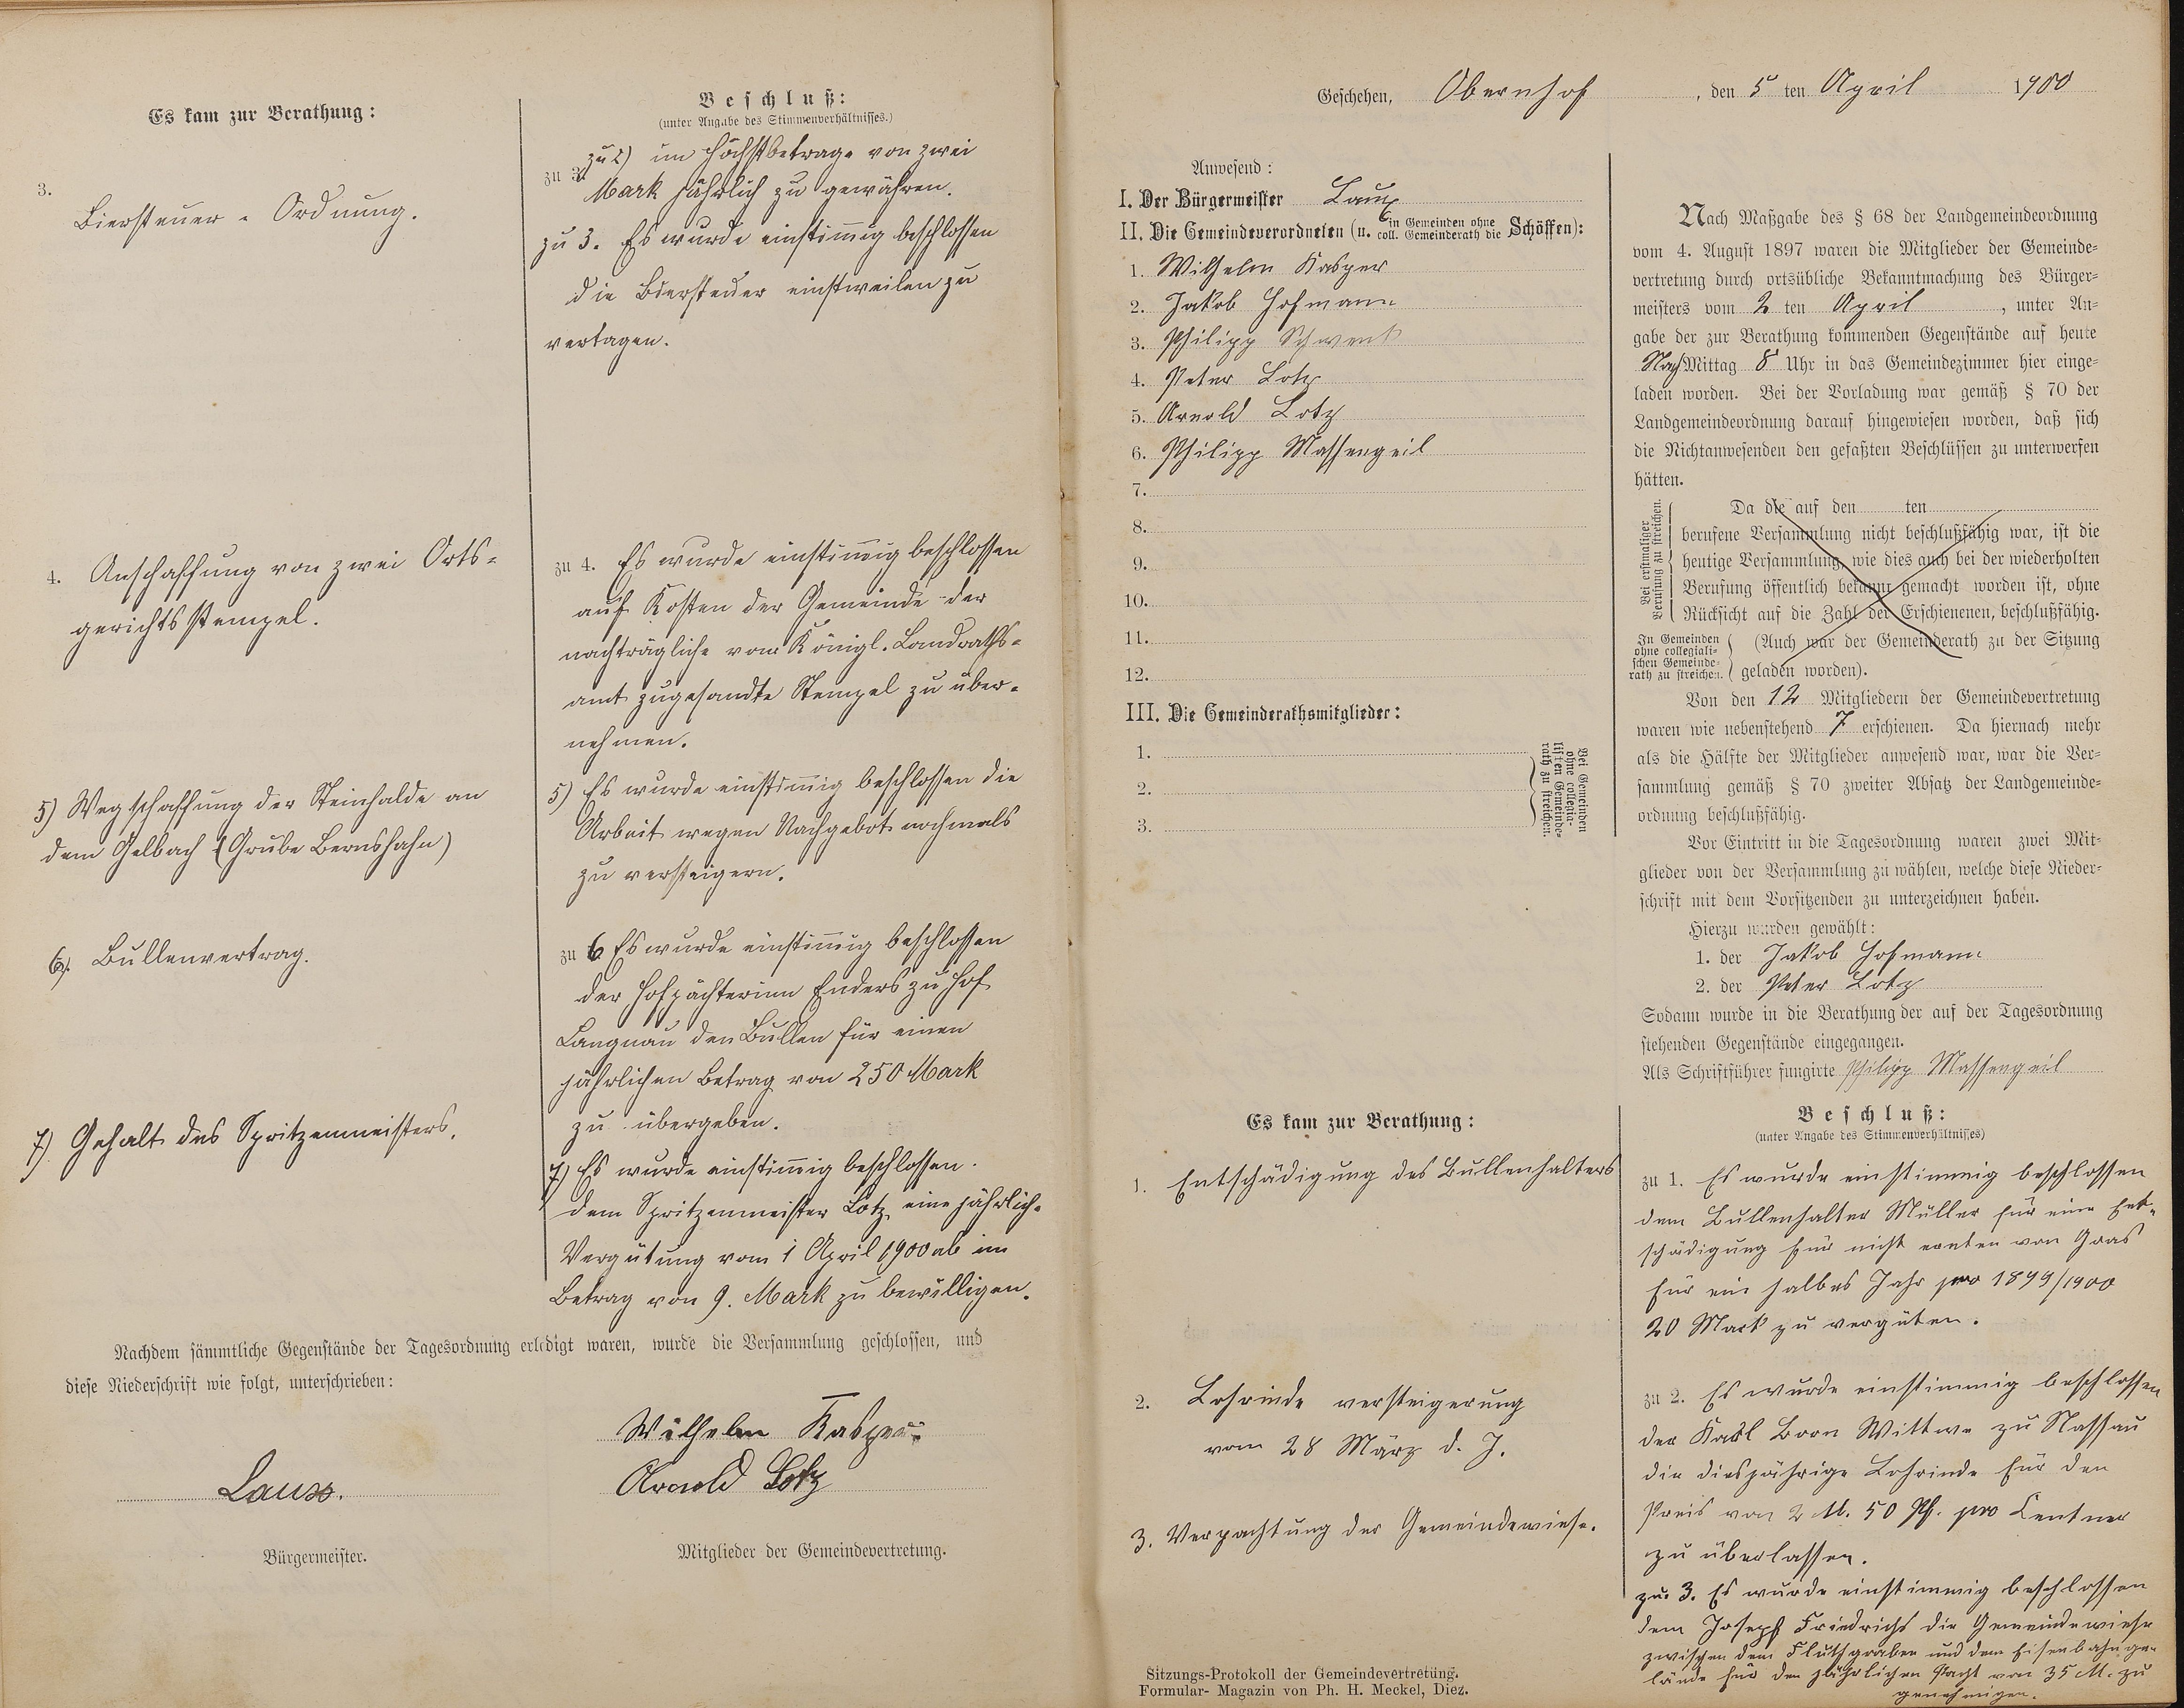 Es kam zur Berathung:
3.
Biersteuer-Ordnung.
4. Anschaffung von zwei Orts-
gerichtsstempel.
5) Wegschaffung der Steinhalde an
dem Gelbach (Grube Bernshahn)
6. Bullenvertrag.
7) Gehalt des Spritzenmeisters.
Beschluß:
(unter Angabe des Stimmenverhältnisses.)
zu 2) im Höchstbetrage von zwei
Mark jährlich zu gewähren.
zu 3. Es wurde einstimmig beschlossen
die Biersteuer einstweilen zu
vertagen.
zu 4. Es wurde einstimmig beschlossen
auf Kosten der Gemeinde der
nachträgliche vom Königl. Landraths-
amt zugesandte Stempel zu über-
nehmen.
5) Es wurde einstimmig beschlossen die
Arbeit wegen Nachgebot nochmals
zu versteigern.
zu 6 Es wurde einstimmig beschlossen
der Hofpächterinn Enders zu Hof
Langnau den Bullen für einen
jährlichen Betrag von 250 Mark
zu übergeben.
7) Es wurde einstimmig beschlossen.
dem Spritzenmeister Lotz eine jährlich-
Vergütung vom 1 April 1900 ab im
Betrag von 9. Mark zu bewilligen.
Nachdem sämmtliche Gegenstände der Tagesordnung erledigt waren, wurde die Versammlung geschlossen, und
diese Niederschrift wie folgt, unterschrieben:
Wilhelm Kasper
Laux.
Arnold Lotz
Bürgermeister.
Mitglieder der Gemeindevertretung.
Geschehen, Obernhof, den 5 ten April 1900
Anwesend:
I. Der Bürgermeister Laux
II. Die Gemeindeverordneten (u. in Gemeinden ohne coll. Gemeinderath die Schöffen):
1. Wilhelm Kasper
2. Jakob Hofmann
3. Philipp Schwenk
4. Peter Lotz
5. Arnold Lotz
6. Philipp Massengeil
7.
8.
9.
10.
11.
12.
III. Die Gemeinderathsmitglieder:
1.
2.
3.
Bei Gemeinden
ohne collegia-
lischen Gemeinde-
rath zu streichen.
Nach Maßgabe des § 68 der Landgemeindeordnung
vom 4. August 1897 waren die Mitglieder der Gemeinde-
vertretung durch ortsübliche Bekanntmachung des Bürger-
meisters vom 2 ten April, unter An-
gabe der zur Berathung kommenden Gegenstände auf heute
Nach Mittag 8 Uhr in das Gemeindezimmer hier einge-
laden worden. Bei der Vorladung war gemäß § 70 der
Landgemeindeordnung darauf hingewiesen worden, daß sich
die Nichtanwesenden den gefaßten Beschlüssen zu unterwerfen
hätten.
Bei erstmaliger
Berufung zu streichen.
Da die auf den ten
berufene Versammlung nicht beschlußfähig war, ist die
heutige Versammlung, wie dies auch bei der wiederholten
Berufung öffentlich bekannt gemacht worden ist, ohne
Rücksicht auf die Zahl der Erschienenen, beschlußfähig.
In Gemeinden
ohne collegiali-
schen Gemeinde-
rath zu streichen.
(Auch war der Gemeinderath zu der Sitzung
geladen worden).
Von den 12 Mitgliedern der Gemeindevertretung
waren wie nebenstehend 7 erschienen. Da hiernach mehr
als die Hälfte der Mitglieder anwesend war, war die Ver-
sammlung gemäß § 70 zweiter Absatz der Landgemeinde-
ordnung beschlußfähig.
Vor Eintritt in die Tagesordnung waren zwei Mit-
glieder von der Versammlung zu wählen, welche diese Nieder-
schrift mit dem Vorsitzenden zu unterzeichnen haben.
Hierzu wurden gewählt:
1. der Jakob Hofmann
2. der Peter Lotz
Sodann wurde in die Berathung der auf der Tagesordnung
stehenden Gegenstände eingegangen.
Als Schriftführer fungirte Philipp Massengeil
Es kam zur Berathung:
1. Entschädigung des Bullenhalters
2. Lohrinde versteigerung
vom 28 März d. J.
3. Verpachtung der Gemeindewiese.
Beschluß:
(unter Angabe des Stimmenverhältnisses)
zu 1. Es wurde einstimmig beschlossen
dem Bullenhalter Müller für eine Ent-
schädigung für nicht ernten von Gras
für ein halbes Jahr pro 1899/1900
20 Mark zu vergüten.
zu 2. Es wurde einstimmig beschlossen
der Karl Born Wittwe zu Nassau
die diesjährige Lohrinde für den
Preis von 2 M. 50 Pf. pro Centner
zu überlassen.
zu 3. Es wurde einstimmig beschlossen
dem Joseph Friedrichs die Gemeindewiese
zwischen dem Fluthgraben und dem Eisenbahnge-
lände für den jährlichen Pacht von 35 M. zu
genehmigen.
Sitzungs-Protokoll der Gemeindevertretung.
Formular-Magazin von Ph. H. Meckel, Diez.